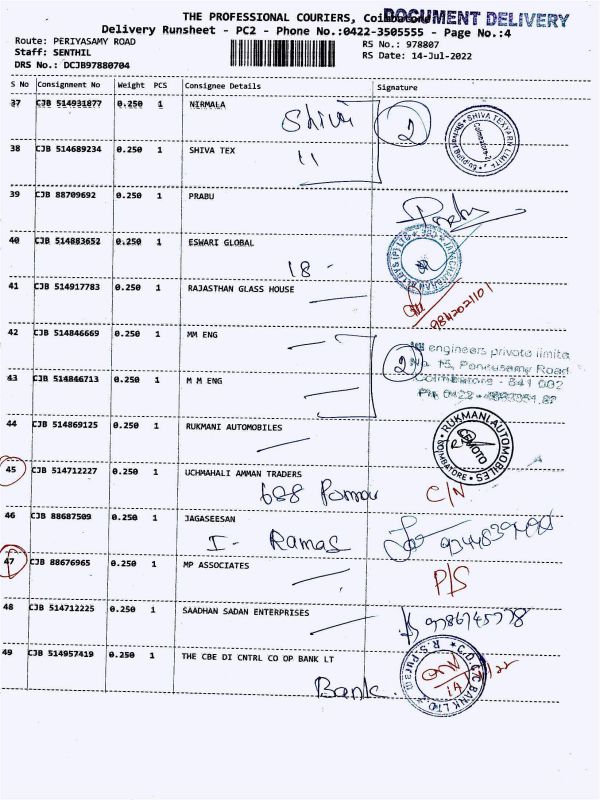 THE PROFESSIONAL COURIERS, Coimbatore
DOCUMENT DELIVERY
Delivery Runsheet - PC2 - Phone No.:0422-3505555 - Page No.:4
Route: PERIYASAMY ROAD
RS No.: 978807
Staff: SENTHIL
RS Date: 14-Jul-2022
DRS No.: DCJB97880704
S No Consignment No Weight PCS Consignee Details Signature
37 CJB 514931877 0.250 1 NIRMALA
Shivi
2
38 CJB 514689234 0.250 1 SHIVA TEX
11
SHIVA TEXYARN LIMITE
39 CJB 88709692 0.250 1 PRABU
Prabu
40 CJB 514883652 0.250 1 ESWARI GLOBAL
18 -
41 CJB 514917783 0.250 1 RAJASTHAN GLASS HOUSE
9842021101
42 CJB 514846669 0.250 1 MM ENG
2
engineers private limite
No 15, Ponnusamy Road
Coimbatore - 641 002
43 CJB 514846713 0.250 1 M M ENG
44 CJB 514869125 0.250 1 RUKMANI AUTOMOBILES
RUKMANI AUTOMOBILES
COIMBATORE
45 CJB 514712227 0.250 1 UCHMAHALI AMMAN TRADERS
C/N
46 CJB 88687509 0.250 1 JAGASEESAN
I - Ramas
47 CJB 88676965 0.250 1 MP ASSOCIATES
P/S
48 CJB 514712225 0.250 1 SAADHAN SADAN ENTERPRISES
9786745778
49 CJB 514957419 0.250 1 THE CBE DI CNTRL CO OP BANK LT
Bank
C.D.C.C BANK LTD.
R.S. Puram